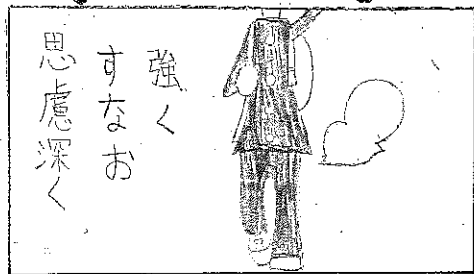 強く
すなお
思慮深く